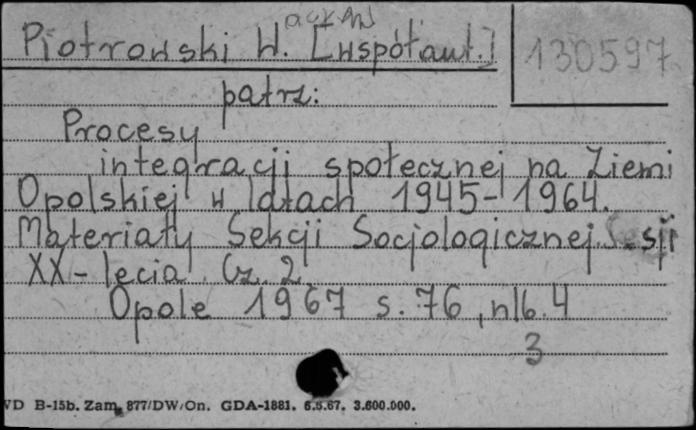 Piotrowski W. [współaut.]
130597
patrz:
Procesy
integracji społecznej na Ziemi
Opolskiej w latach 1945-1964.
Materiały Sekcji Socjologicznej Sesji
XX-lecia. Cz. 2.
Opole 1967 s. 76, nlb. 4
3
WD B-15b. Zam. 877/DW/On. GDA-1881. 6.5.67. 3.600.000.